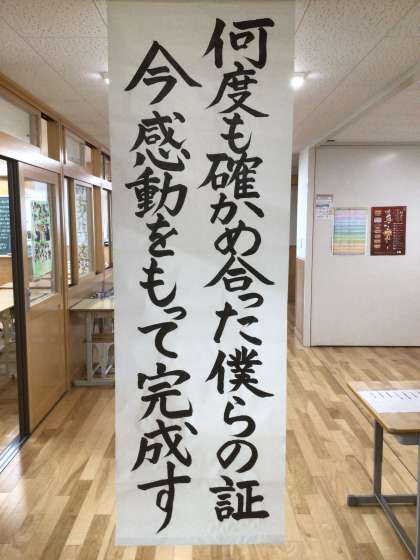 何度も確かめ合った僕らの証
今感動をもって完成す